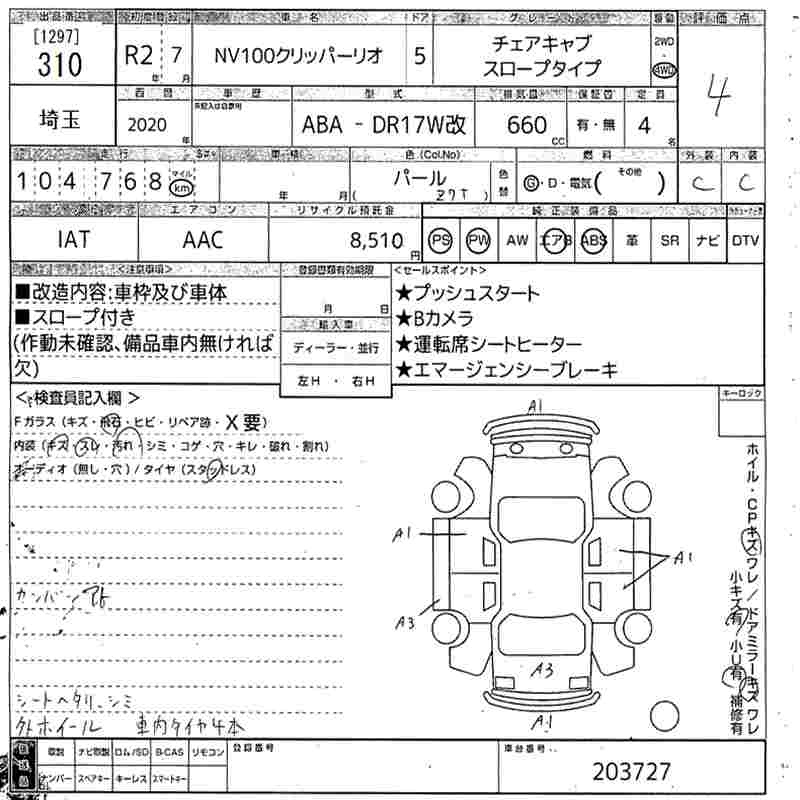 出品番号 初度登録 車名 ドア グレード 駆動 評価点
[1297]
310 R2年 7月 NV100クリッパーリオ 5 チェアキャブ
スロープタイプ
2WD
・
4WD
4
西暦 車歴 型式 排気量 保証書 定員
埼玉 2020年 ABA - DR17W改 660cc 有・無 4名
走行 車検 色(Col.No) 燃料 外装 内装
104768 マイル km 年 月 パール ( Z7T ) 色替 G・D・電気( その他 ) C C
エアコン リサイクル預託金 純正装備品
IAT AAC 8,510円 PS PW AW エアB ABS 革 SR ナビ DTV
<注意事項> 登録書類有効期限 <セールスポイント>
■改造内容:車枠及び車体
■スロープ付き
(作動未確認、備品車内無ければ
欠)
月 日
輸入車
ディーラー・並行
左H ・ 右H
★プッシュスタート
★Bカメラ
★運転席シートヒーター
★エマージェンシーブレーキ
キーロック
<検査員記入欄>
Fガラス(キズ・飛石・ヒビ・リペア跡・X要)
内装(キズ・スレ・汚れ・シミ・コゲ・穴・キレ・破れ・割れ)
オーディオ(無し・穴)/タイヤ(スタッドレス)
カンバンアト
シートヘタリ、シミ
外ホイール 車内タイヤ4本
A1
A1
A1
A3
A3
A1
ホイル・CPキズワレ/ドアミラーキズワレ
小キズ有/小U有/補修有
取説 ナビ取説 ロム/SD B-CAS リモコン 登録番号 車台番号
ナンバー スペアキー キーレス スマートキー
203727